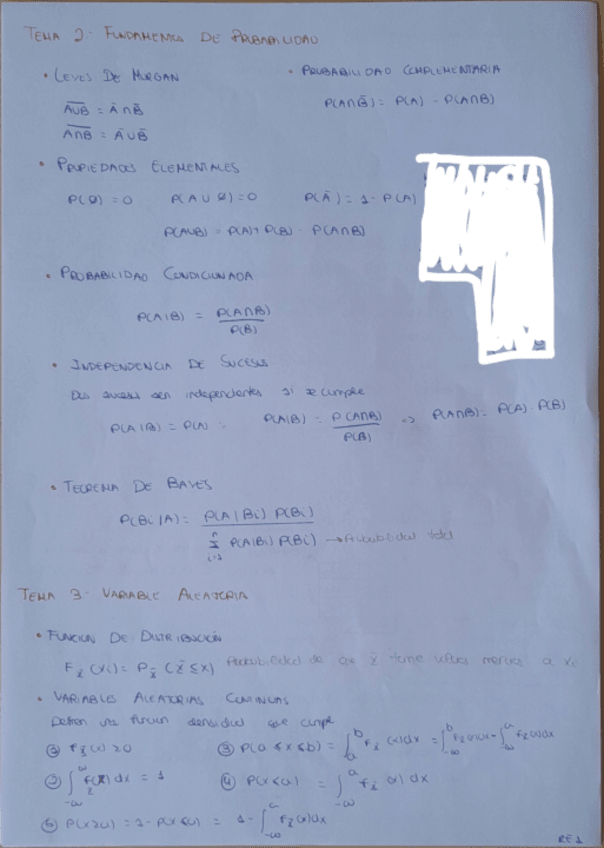 TEMA 2: FUNDAMENTOS DE PROBABILIDAD
• LEYES DE MORGAN
A̅U̅B̅ = A̅ ∩ B̅
A̅∩̅B̅ = A̅ U B̅
• PROBABILIDAD COMPLEMENTARIA
P(A∩B̅) = P(A) - P(A∩B)
• PROPIEDADES ELEMENTALES
P(Ø) = 0 P(A U Ø) = 0 P(A̅) = 1 - P(A)
P(AUB) = P(A) + P(B) - P(A∩B)
• PROBABILIDAD CONDICIONADA
P(A|B) = P(A∩B) / P(B)
• INDEPENDENCIA DE SUCESOS
Dos sucesos son independientes si se cumple
P(A|B) = P(A) : P(A|B) = P(A∩B) / P(B) => P(A∩B) = P(A) · P(B)
• TEOREMA DE BAYES
P(Bi|A) = P(A|Bi) P(Bi) / Σ P(A|Bi) P(Bi) → Probabilidad total
TEMA 3: VARIABLE ALEATORIA
• FUNCION DE DISTRIBUCIÓN
Probabilidad de que tome valores menores a
• VARIABLES ALEATORIAS CONTINUAS
Definen una funcion densidad que cumple
① ≥ 0
③ P(a ≤ x ≤ b) =
② dx = 1
④ P(x<a) =
RE 1